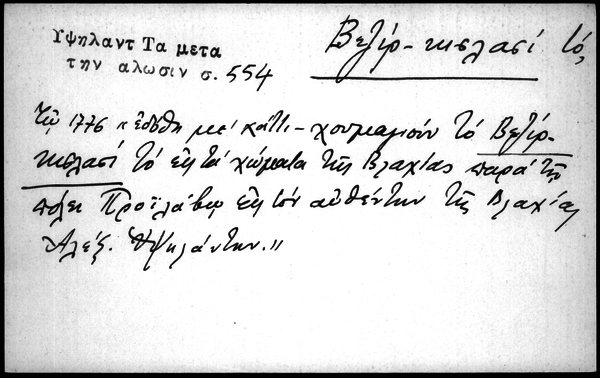 Υψηλαντ Τα μετα
την αλωσιν σ. 554
Βεζίρ-κισλασί τό,
Τῷ 1776 "ἐδόθη μέ κάττι-χουμαγιούν τό Βεζίρ-
κισλασί τό εἰς τά χώματα τῆς Βλαχίας παρά τῇ
πόλει Προϊλάβῳ εἰς τόν αὐθέντην τῆς Βλαχίας
Ἀλέξ. Ὑψηλάντην."